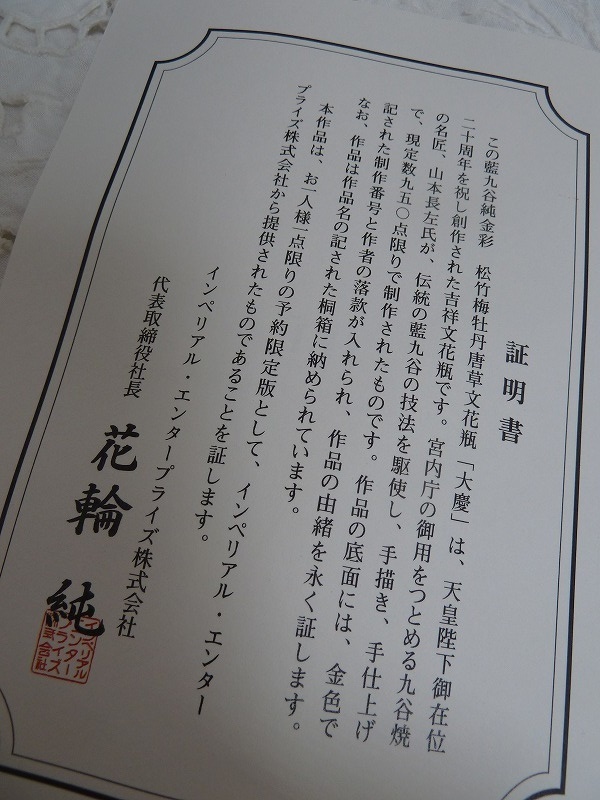 証明書
この藍九谷純金彩　松竹梅牡丹唐草文花瓶「大慶」は、天皇陛下御在位
二十周年を祝し創作された吉祥文花瓶です。宮内庁の御用をつとめる九谷焼
の名匠、山本長左氏が、伝統の藍九谷の技法を駆使し、手描き、手仕上げ
で、現定数九五〇点限りで制作されたものです。作品の底面には、金色で
記された制作番号と作者の落款が入れられ、作品の由緒を永く証します。
なお、作品は作品名の記された桐箱に納められています。
本作品は、お一人様一点限りの予約限定版として、インペリアル・エンター
プライズ株式会社から提供されたものであることを証します。
インペリアル・エンタープライズ株式会社
代表取締役社長　花輪　純
インペリアル
エンター
プライズ
株式会社